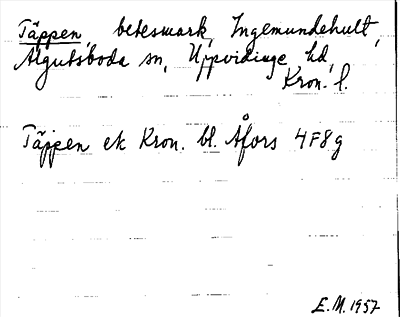 Täppen, betesmark, Ingemundehult,
Algutsboda sn, Uppvidinge hd,
Kron. l.
Täppen ek Kron. bl. Åfors 4F8g
E.M. 1957